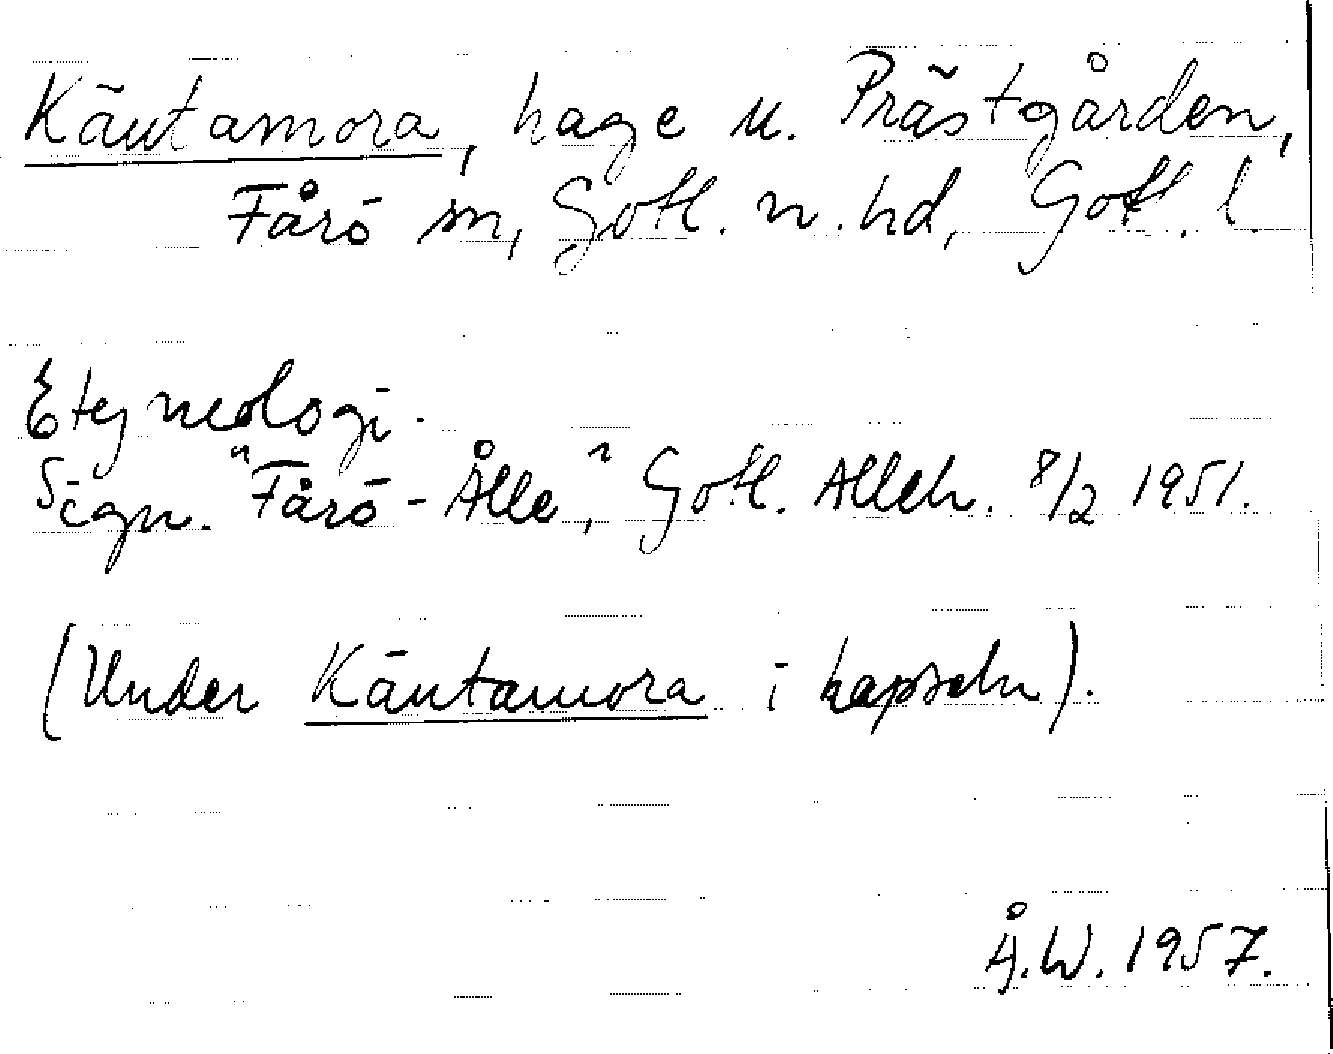 Käutamora, hage u. Prästgården,
Fårö sn, Gotl. n. hd, Gotl. l.
Etymologi.
Sign. "Fårö-Ålle", Gotl. Alleh. 8/2 1951.
(Under Käutamora i kapseln).
Å.W. 1957.